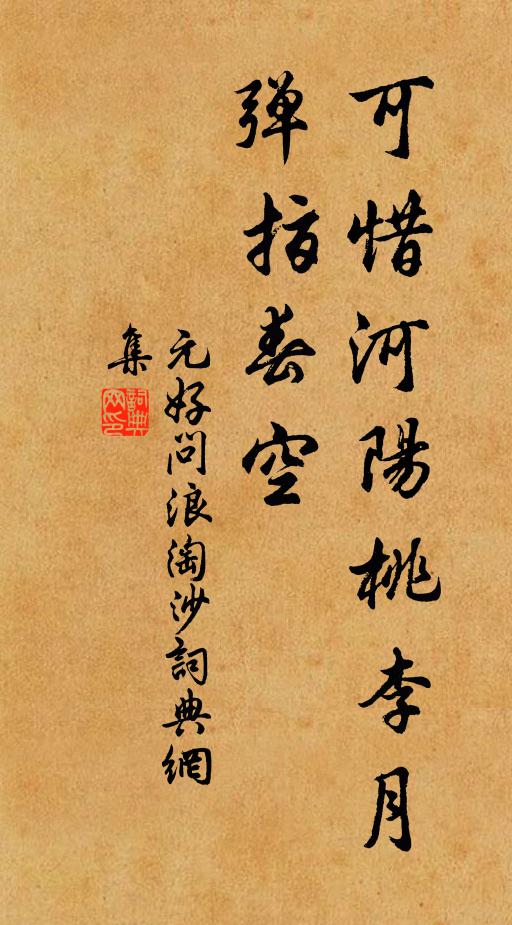 可惜河陽桃李月
弹指春空
元好问浪淘沙詞典網
集
詞典网印